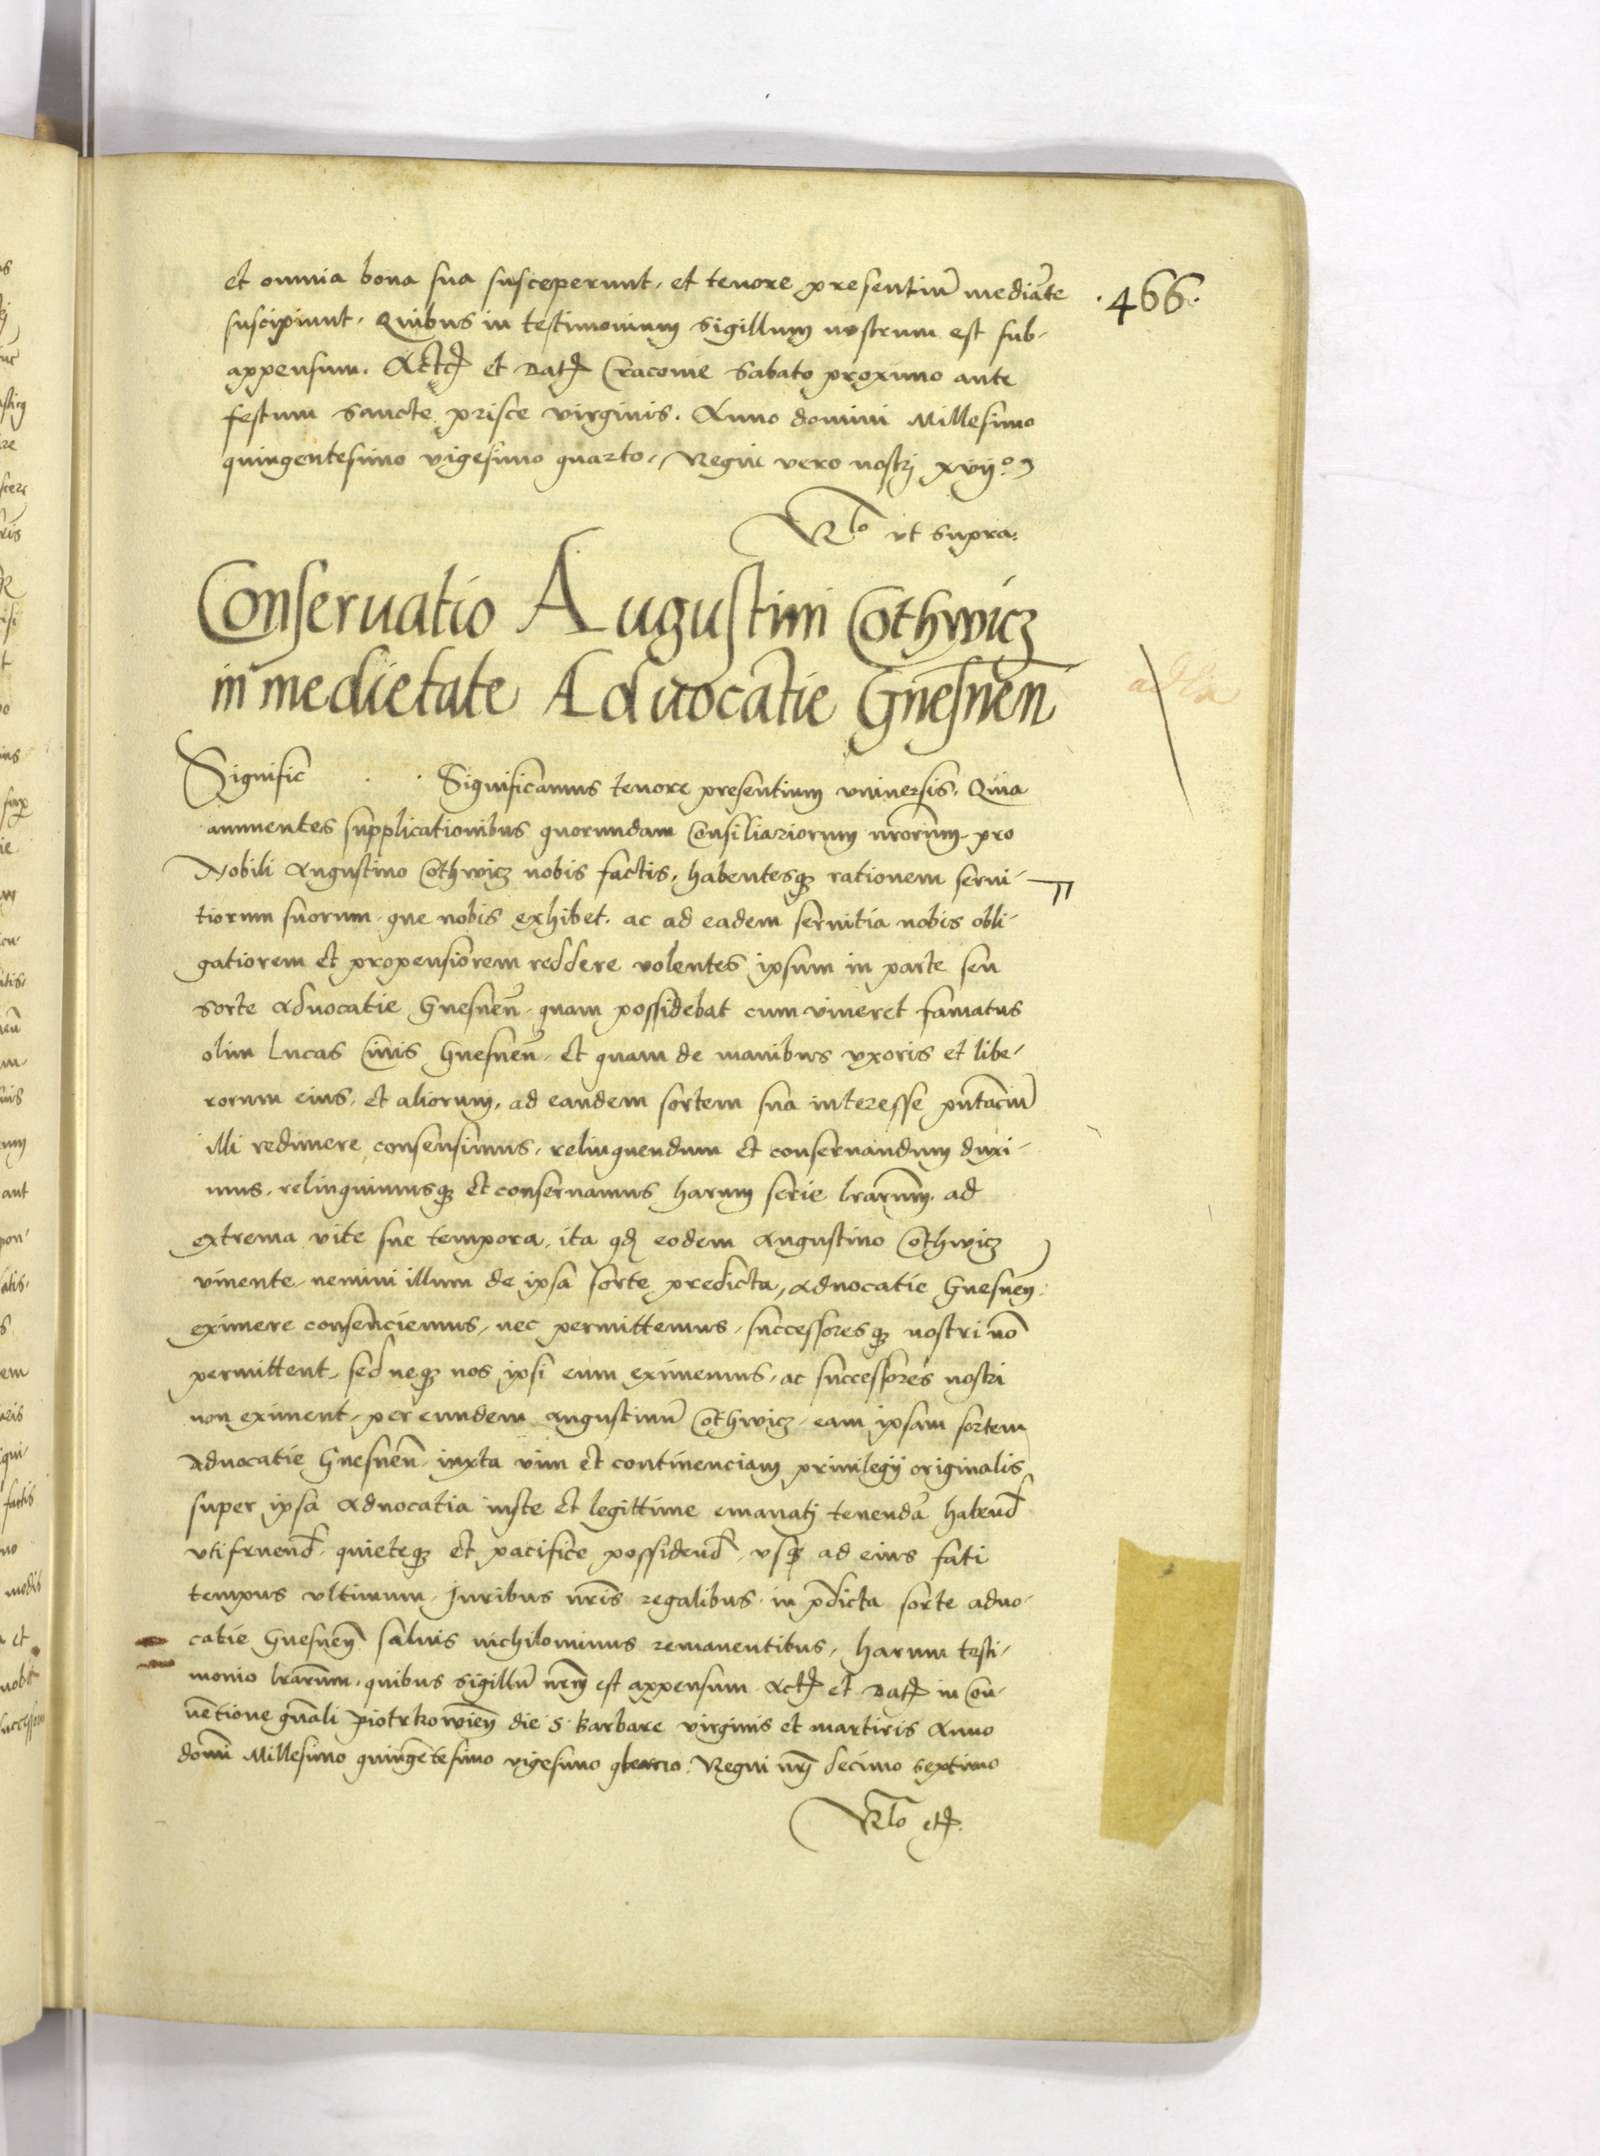 et omnia bona sua susceperunt, et tenore presentiũ mediãte
·466·
suscipiunt. Quibus in testimonium sigillum nostrum est sub-
appensum. Act. et Dat. Cracovie Sabato proximo ante
festum Sancte prisce virginis. Anno domini Millesimo
quingentesimo vigesimo quarto, Regni vero nostri xvij°
Rlo ut supra.
Conservatio Augustini Cothwicz
in medietate Advocatie Gnesnen̄
Signific . . Significamus tenore presentium universis. Quia
annuentes supplicationibus quorundam Consiliariorum nrorum pro
Nobili Augustino Cothwicz nobis factis, habentesq; rationem servi-
tiorum suorum que nobis exhibet, ac ad eadem servitia nobis obli-
gatiorem et propensiorem reddere volentes ipsum in parte seu
sorte Advocatie Gnesnen̄ quam possidebat cum viveret famatus
olim Lucas Civis Gnesnen̄, et quam de manibus uxoris et libe-
rorum eius, et aliorum, ad eandem sortem sua interesse putanciũ
illi redimere consensimus, relinquendum et conservandum duxi-
mus, relinquimusq; et conservamus harum serie lrarum, ad
extrema vite sue tempora, ita qd eodem Augustino Cothwicz
vivente, nemini illum de ipsa sorte predicta, Advocatie Gnesnen̄
eximere consenciemus, nec permittemus, successoresq; nostri nō
permittent, sed neq; nos ipsi eum eximemus, ac successores nostri
non eximent, per eundem Augustinũ Cothwicz, eam ipsam sortem
Advocatie Gnesnen̄ iuxta vim et continenciam privilegij originalis
super ipsa Advocatia iuste et legittime emanatj tenendã habend
utifruend, quieteq; et pacifice possidend, usq; ad eius fati
tempus ultimum, Juribus nris regalibus in pdicta sorte advo-
catie Gnesnen̄ salvis nichilominus remanentibus, harum testi-
monio lrarum, quibus sigillũ nrm est appensum. Act. et Dat. in Con-
ventione gnali Piotrkovien̄ die S. Barbare virginis et martiris Anno
domi Millesimo quingētesimo vigesimo Regni nrj decimo septimo
Rlo etc.